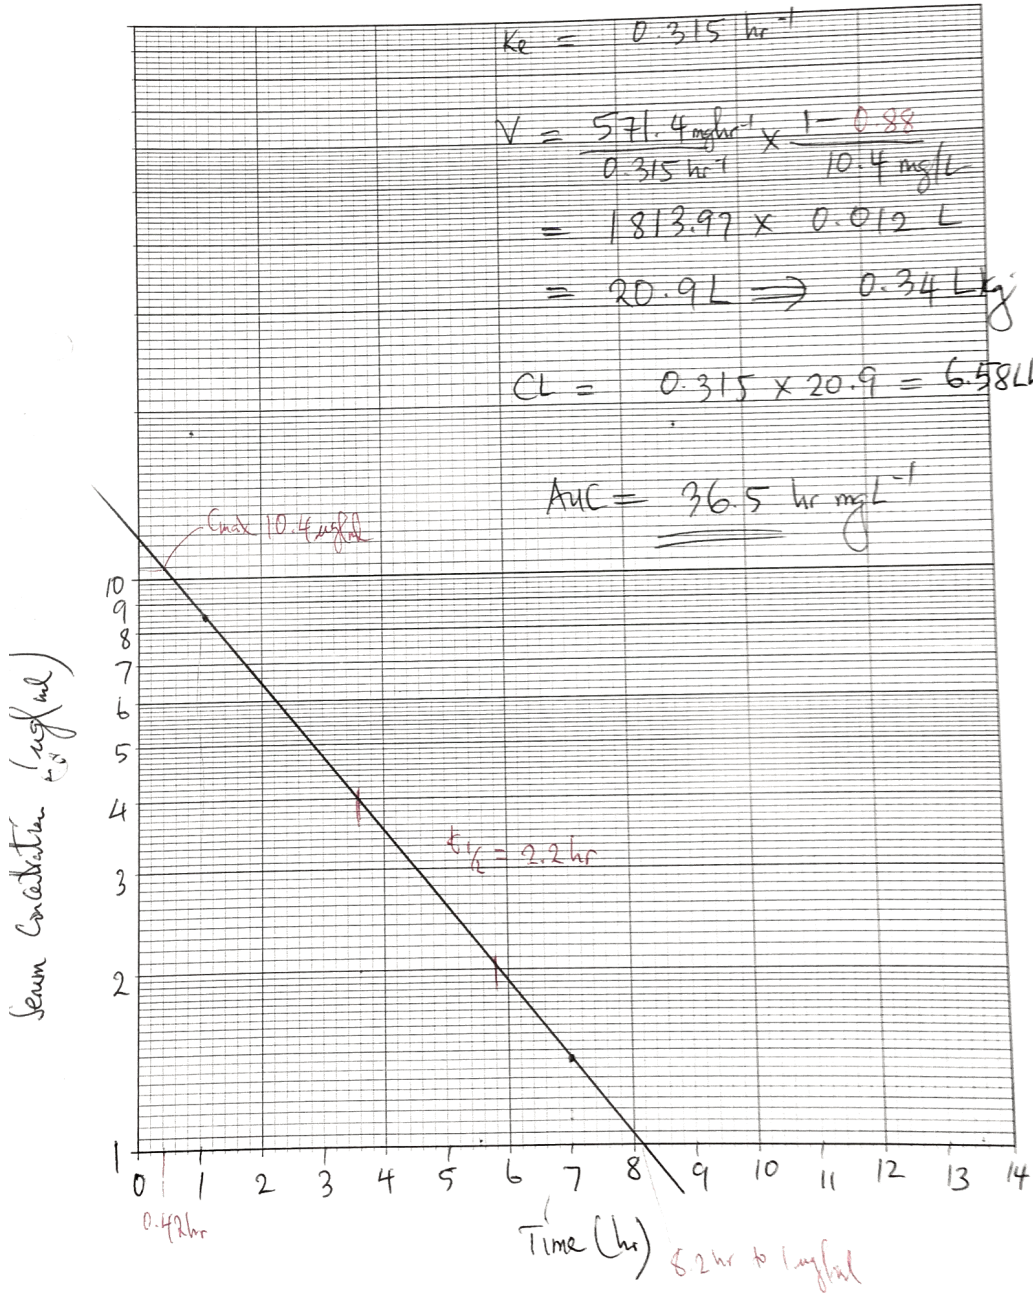 Ke = 0.315 hr⁻¹
V = 571.4 mghr⁻¹ / 0.315 hr⁻¹ × 1 - 0.88 / 10.4 mg/L
= 1813.97 × 0.012 L
= 20.9 L ⟹ 0.34 L/kg
CL = 0.315 × 20.9 = 6.58 L
AUC = 36.5 hr mgL⁻¹
Cmax 10.4 ug/ml
10
9
8
7
6
5
4
3
2
1
Serum Concentration (ug/ml)
t1/2 = 2.2 hr
0 1 2 3 4 5 6 7 8 9 10 11 12 13 14
0.42hr
Time (hr)
8.2 hr to 1 ug/ml